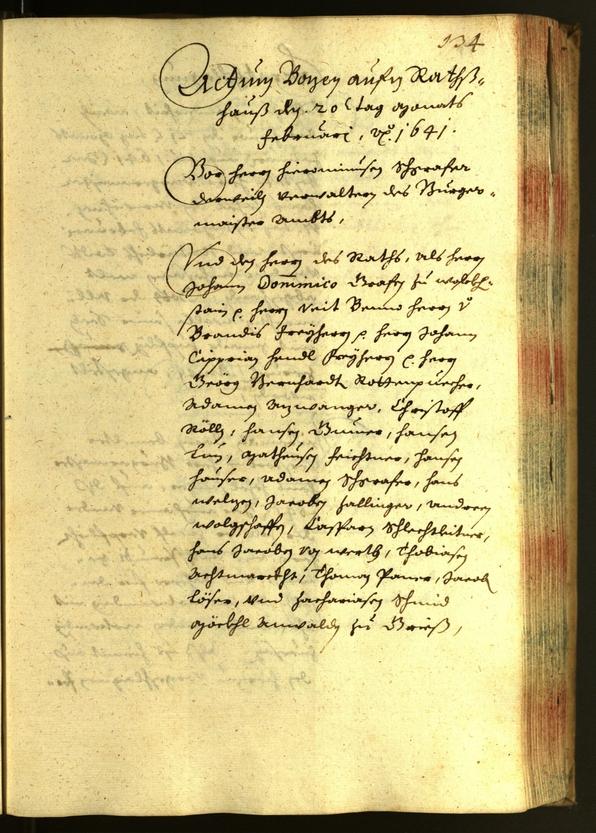 134
Actum Bozen aufm Rathß„
hauß den 20 tag Monats
Februari, Ao. 1641.
Vor herrn Hieronimusen Schrafer
derweil verwaltern des Burger„
maister Ambts,
Vnd den herrn des Raths, als herrn
Johann Dominico Grafen zu Wolckh„
stain p. herrn Veit Benno herrn v
Brandis Freyherrn p. herrn Johann
Cipprian Hendl Freyherrn p. herrn
Geörg Bernhardt Rottenpuecher,
Adamen Anzwanger, Christoff
Röll, Hansen Gumer, Hansen
Lun, Matheusen Feichtner, Hansen
Hauser, Adamen Schrafer, Hans
Welzen, Jacoben Hallinger, Andreen
Wolgschaffen, Casparn Schlechtleitner,
Hans Jacoben von Werth, Thobiasen
Achtmarckht, Thoman Paurr, Jacob
Löser, vnd Zachariasen Schmid
Anwaldn zu Grieß,